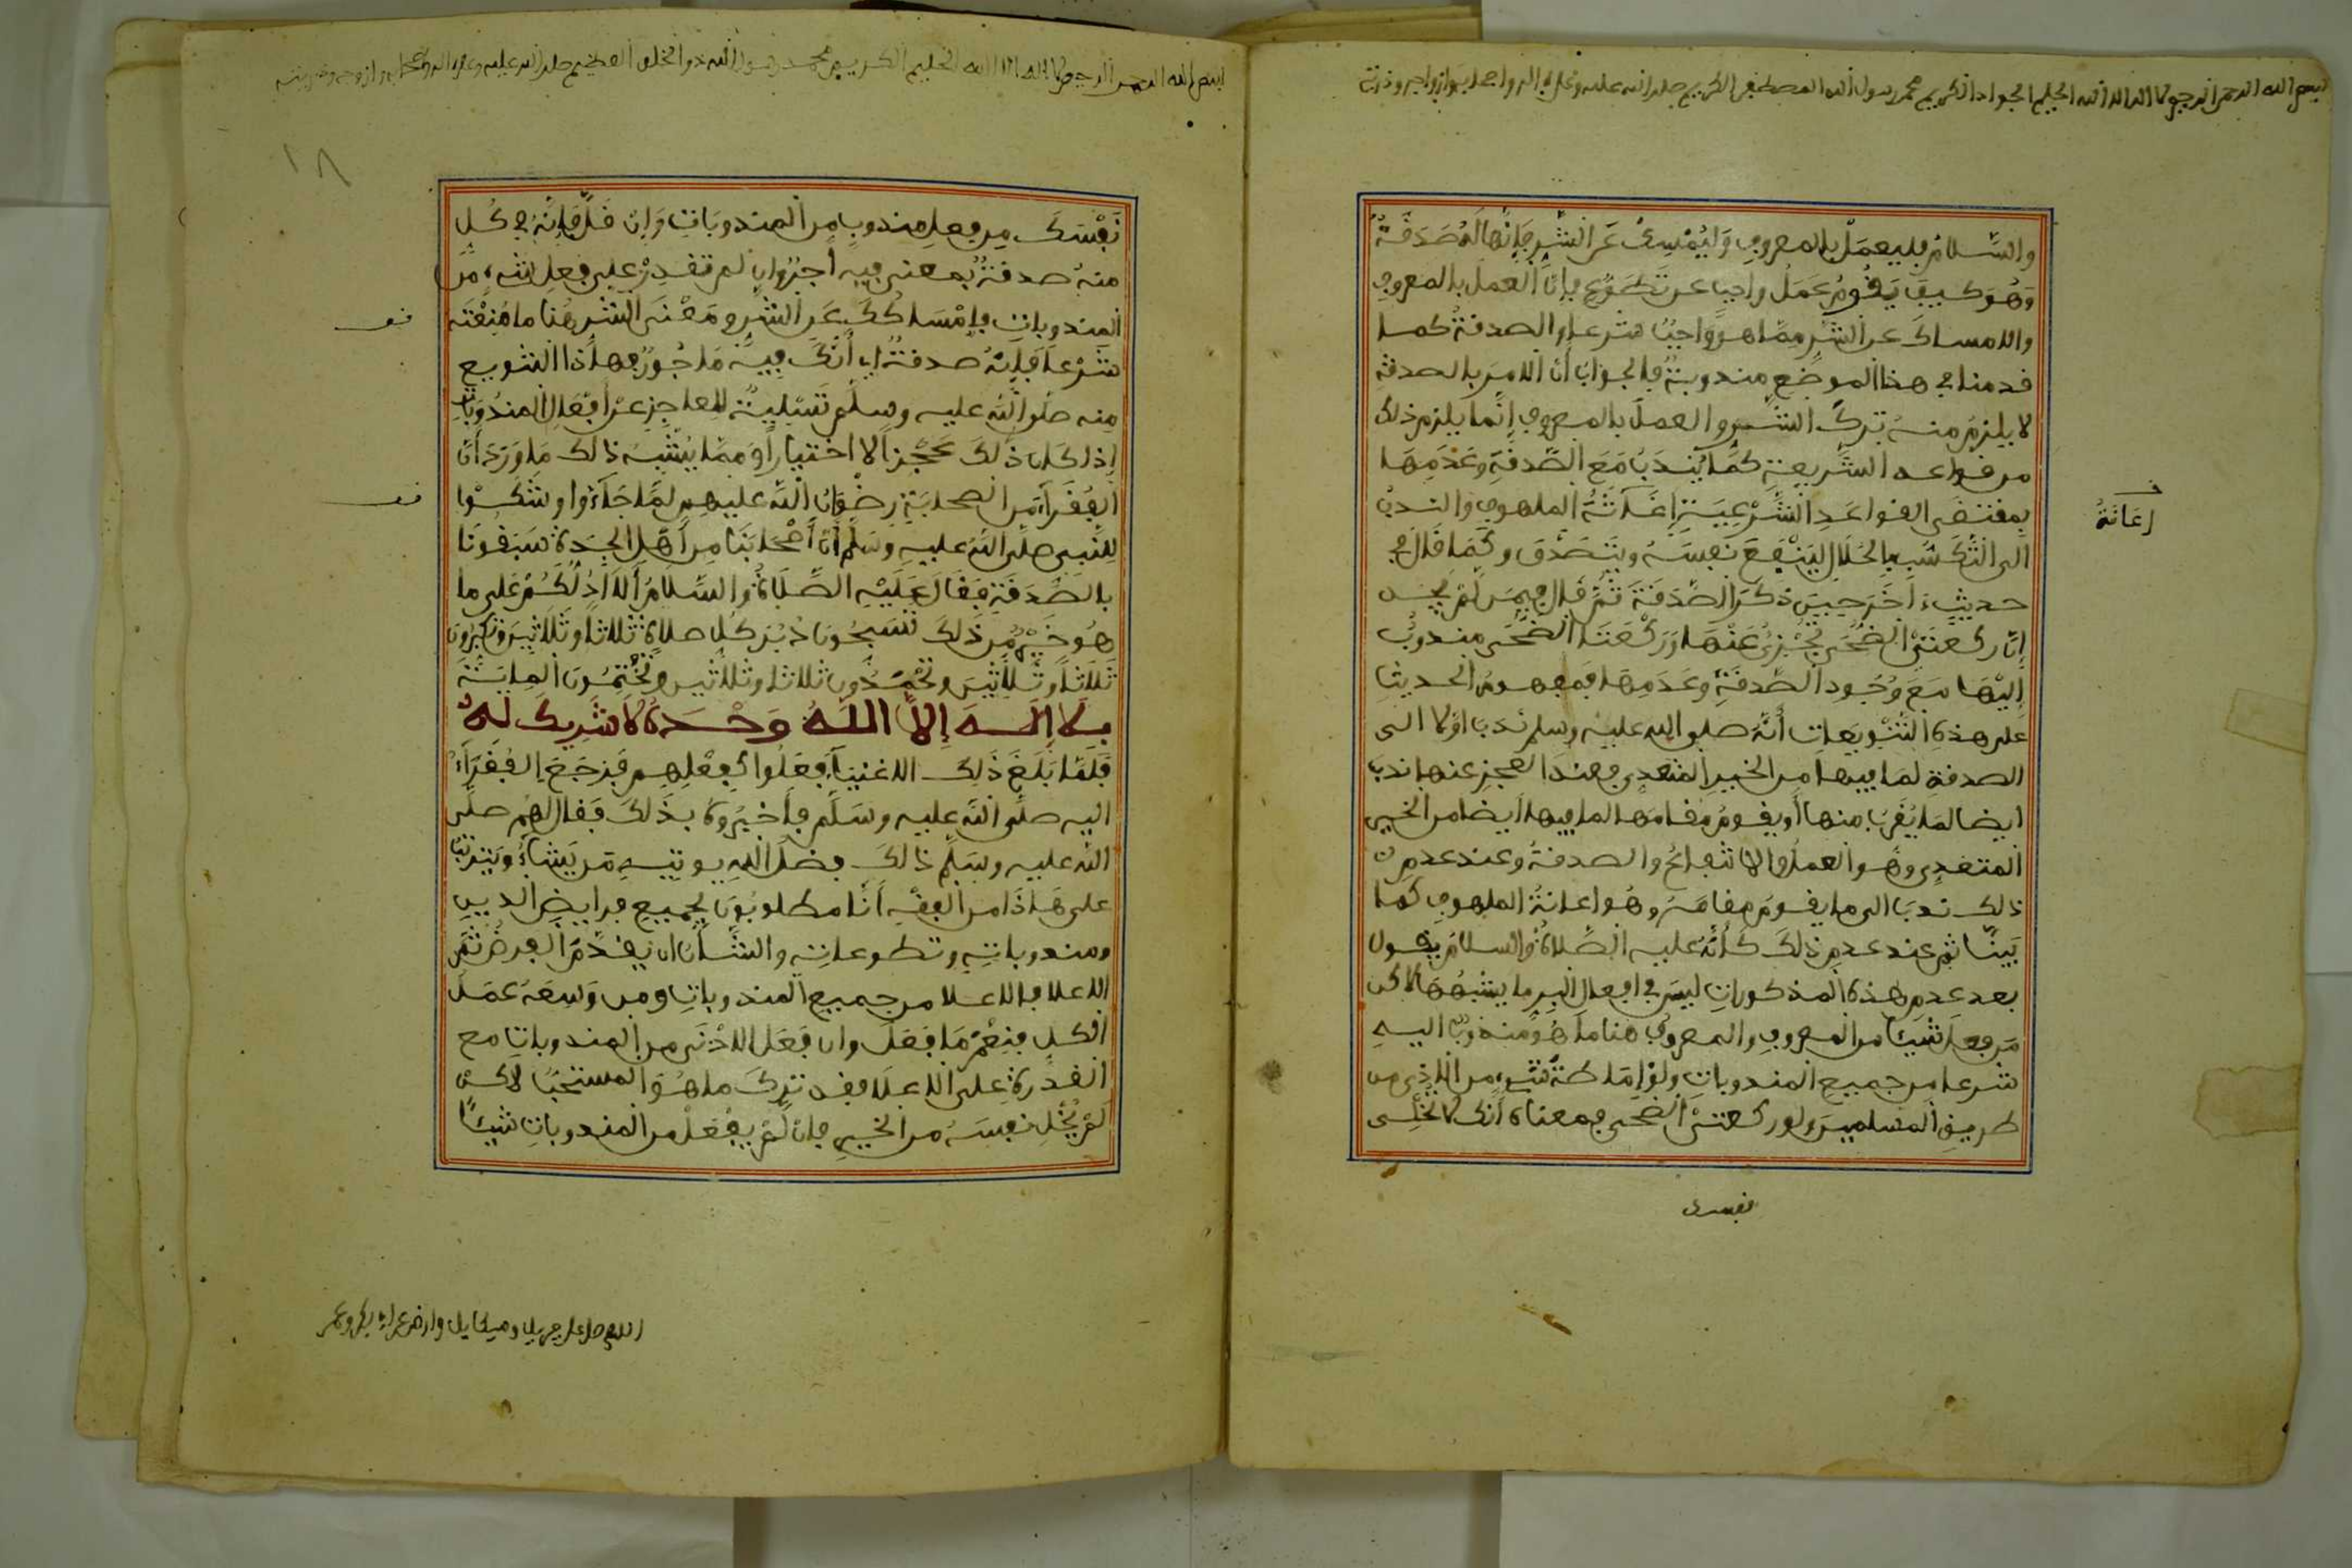 بسم الله الرحمن الرحيم لا اله الا الله الحليم الجواد الكريم محمد رسول الله المصطفى الكريم صلى الله عليه وعلى اله واصحابه وازواجه وذريته
والسَّلامُ فليعمَلْ بالمعروفِ وَليُمْسِكْ عَنِ الشَّرِّ فَإِنَّهَا لَهُ صَدَقَةٌ
وَهُوَ كيف يَقُومُ عَمَلٌ واجبا عن تَطَوُّعٍ فإنَّ العملَ بالمعروفِ
والامساكَ عن الشَّرِّ ممَّا هو واجبٌ شرعا والصدقةُ كما
قدمنا في هذا الموضعِ مندوبةٌ فالجوابُ أنَّ الامرَ بالصدقة
لا يلزمُ منهُ تركُ الشَّرِّ والعملَ بالمعروفِ إنَّما يلزم ذلك
من قواعد الشَّريعةِ كمَا يُندَبُ مَعَ الصَّدقَةِ وعَدَمِهَا
بمقتضَى القواعَدِ الشَّرْعِيَةِ إغَاثَةُ الملهوفِ والندبُ
الى التَّكَسُّبِ بالحَلالِ ليَنْفَعَ نفسَهُ ويَتَصَدَّقَ وكَمَا قَالَ في
حديثٍ ءاخَرَ حينَ ذكرَ الصَّدَقَةَ ثمَّ قال فيمن لمْ يجد
إنَّ ركعتَيْ الضُّحَى تُجْزِئُ عَنْهَا وَرَكْعَتَا الضُّحَى مندوبٌ
إليْهَا مَعَ وُجُودِ الصَّدقَةِ وعَدَمِهَا فمفهومُ الحديث
على هذهِ التَّنْوِيعات أنَّه صلى الله عليه وسلم نَدَبَ اوَّلا الى
الصدقة لما فيها من الخيرِ المتعدي فعندَ العجزِ عنها ندبَ
ايضا لمَا يُقرِّبُ منها أو يقومُ مقامَها لما فيها أيضا من الخير
المتعدي وهُو العملُ والانتفاعُ والصدقةُ وعند عدمِ
ذلك ندبَ الى ما يقومُ مقامَهُ وهُو اعانةُ الملهوفِ كما
بَينَّا ثم عند عدمِ ذلكَ كَأنَّهُ عليه الصَّلاةُ والسلامُ يقول
بعد عدمِ هذه المذكوراتِ ليسَ في افعالِ البِرِ ما يشبهُهَا لاكن
مَن فعلَ شَيئًا من المعروفِ والمعروفُ هنا ما هُو مندوبٌ اليهِ
شرعا من جميعِ المندوباتِ ولوْ إمَاطةُ شيءٍ من الاذى من
طريقِ المسلمينَ ولو ركعتَيْ الضُّحى فمعناه أنَّك لا تُخْلِي
اعَانَةُ
نفسك
بسم الله الرحمن الرحيم لا اله الا الله الحليم الكريم محمد رسول الله ذو الخلق العظيم صلى الله عليه وعلى اله واصحابه وازواجه وذريته
١٨
نَفْسَكَ من فعلِ مندوبٍ من المندوبَاتِ وَإن قَلَّ فَإنَّهُ في كُلٍ
منهُ صدقةٌ بمعنى فيه أجرٌ وإن لم تقدِرْ على فعلِ شيءٍ مِّنَ
المندوباتِ فإمْسَاكُكَ عَنِ الشَّرِ ومَعْنَى الشَّر هُنا ما مُنِعْتَه
شَرْعاً فَإنَّهُ صدقةٌ اي أنَّكَ فِيهِ مَاجُورٌ فهاذا التنويع
منه صلى اللهُ عليه وسلم تَسْلِيةٌ للعاجزِ عنْ أفعالِ المندُوبَاتِ
إذا كان ذلكَ عَجْزاً لا اختيارًا ومِمَّا يُشْبِهُ ذالك مَا وَرَدَ أنَّ
الفُقَرَآءَ من الصحابةِ رِضْوَانُ اللهِ عليهم لمَّا جَآءُوا وشَكَوْا
للنَّبي صلَّى اللهُ عليهِ وسَلَّم أنَّ أصْحَابَنَا من أهلِ الجِدَةِ سَبَقُونَا
بالصَّدَقَةِ فقَالَ عَلَيْهِ الصَّلَاةُ والسَّلَامُ ألَا أدُلُّكُمْ عَلَى ما
هُو خَيْرٌ مِّن ذَلكَ تُسَبِّحُونَ دُبُرَ كلِّ صلاةٍ ثَلاثاً وثَلَاثِينَ وتكبرونَ
ثَلاثَاً وثَلاثِينَ وتحْمَدُونَ ثلاثا وثلاثين وتخْتِمُونَ المِايَةَ
بلَا إلَـهَ إلَّا اللَّهُ وَحْدَهُ لَا شَرِيكَ لَهُ
فلمَّا بَلَغَ ذَلِكَ الاغنيَآءَ فعَلُوا كفِعْلِهِم فَرجَعَ الفُقَرَآءُ
اليه صلَّى اللهُ عليه وسَلَّم فأخبَرُوهُ بذَلكَ فقال لهُم صلَّى
اللهُ عليه وسَلَّم ذالكَ فضلُ اللهِ يوتيهِ مَن يَشَآءُ ويَترتَّبُ
على هَاذَا من الفقهِ أنَّا مطلوبُونَ بجميعِ فرايضِ الدين
ومندوباتِهِ وتطوعاتِه والشَّأنُ ان يقدَّمَ الفرضُ ثمَّ
الاعلا فالاعلا من جميعِ المندوباتِ ومن وَسِعَهُ عَمَلُ
الكلِ فنِعْمَ مَا فَعَلَ وان فَعَلَ الادْنَى من المندوباتِ مع
القدْرةِ على الاعلَا فقد تركَ ما هُوَ المستحبُّ لاكن
لَمْ يُخْلِ نفسَهُ من الخيرِ فإن لَّمْ يفْعَلْ من المندوباتِ شيئًا
اللهم صل على جبريل وميكايل وارض عن ابي بكر وعمر